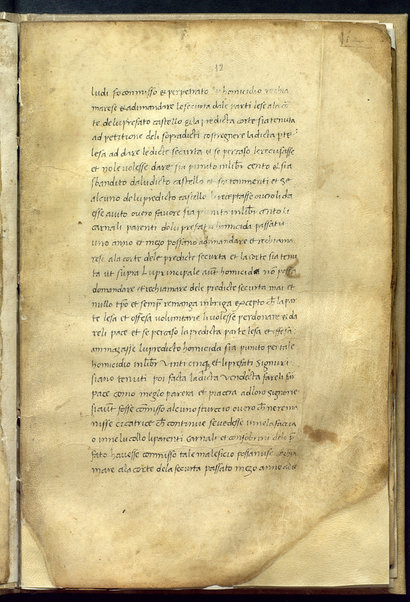 12
ludi fo comisso & perpetrato lu homicidio rechia
marese & adimandare le securta dale parti lese ala cor
te delu prefato castello & la predicta corte sia tenuta
ad petitione deli sopradicti costregnere la dicta pte
lesa ad dare le dicte securta et se per caso le recusasse
et no le volesse dare sia punito in libr cento & sia
sbandito da lu dicto castello et soi tenimenti et Se
alcuno de lu predicto castello lu receptasse overo li da
esse aiuto overo favore sia punito in libr cento li
carnali parenti de lu prefatu homicida passatu
uno anno et mezo possano adimandare et rechiama
rese ala corte dele predicte securta et la corte sia tenu
ta ut supra Lu principale aut homicida no possa
domandare et rechiamare dele predicte securta mai et
nullo tpo et semp remanga in briga excepto ch la par
te lesa et offesa voluntarie li volesse perdonare & da
reli pace et se per caso la predicta parte lesa et offesa
ammazasse lu predicto homicida sia punito per tale
homicidio in libr Vinti cinq et li prefati Signuri
siano tenuti poi facta la dicta Vendecta fareli fare
pace como meglo parera et piacera ad loro signorie
si aut fosse comisso alcuno sturcio overo ch ne rema
nisse cicatrice ch continue se vedesse in nela faccia
o in ne lu collo li parenti carnali et consobrini delo pre
fato havesse comisso tale maleficio possanose rechia
mare ala corte dela securta passato mezo anno ale